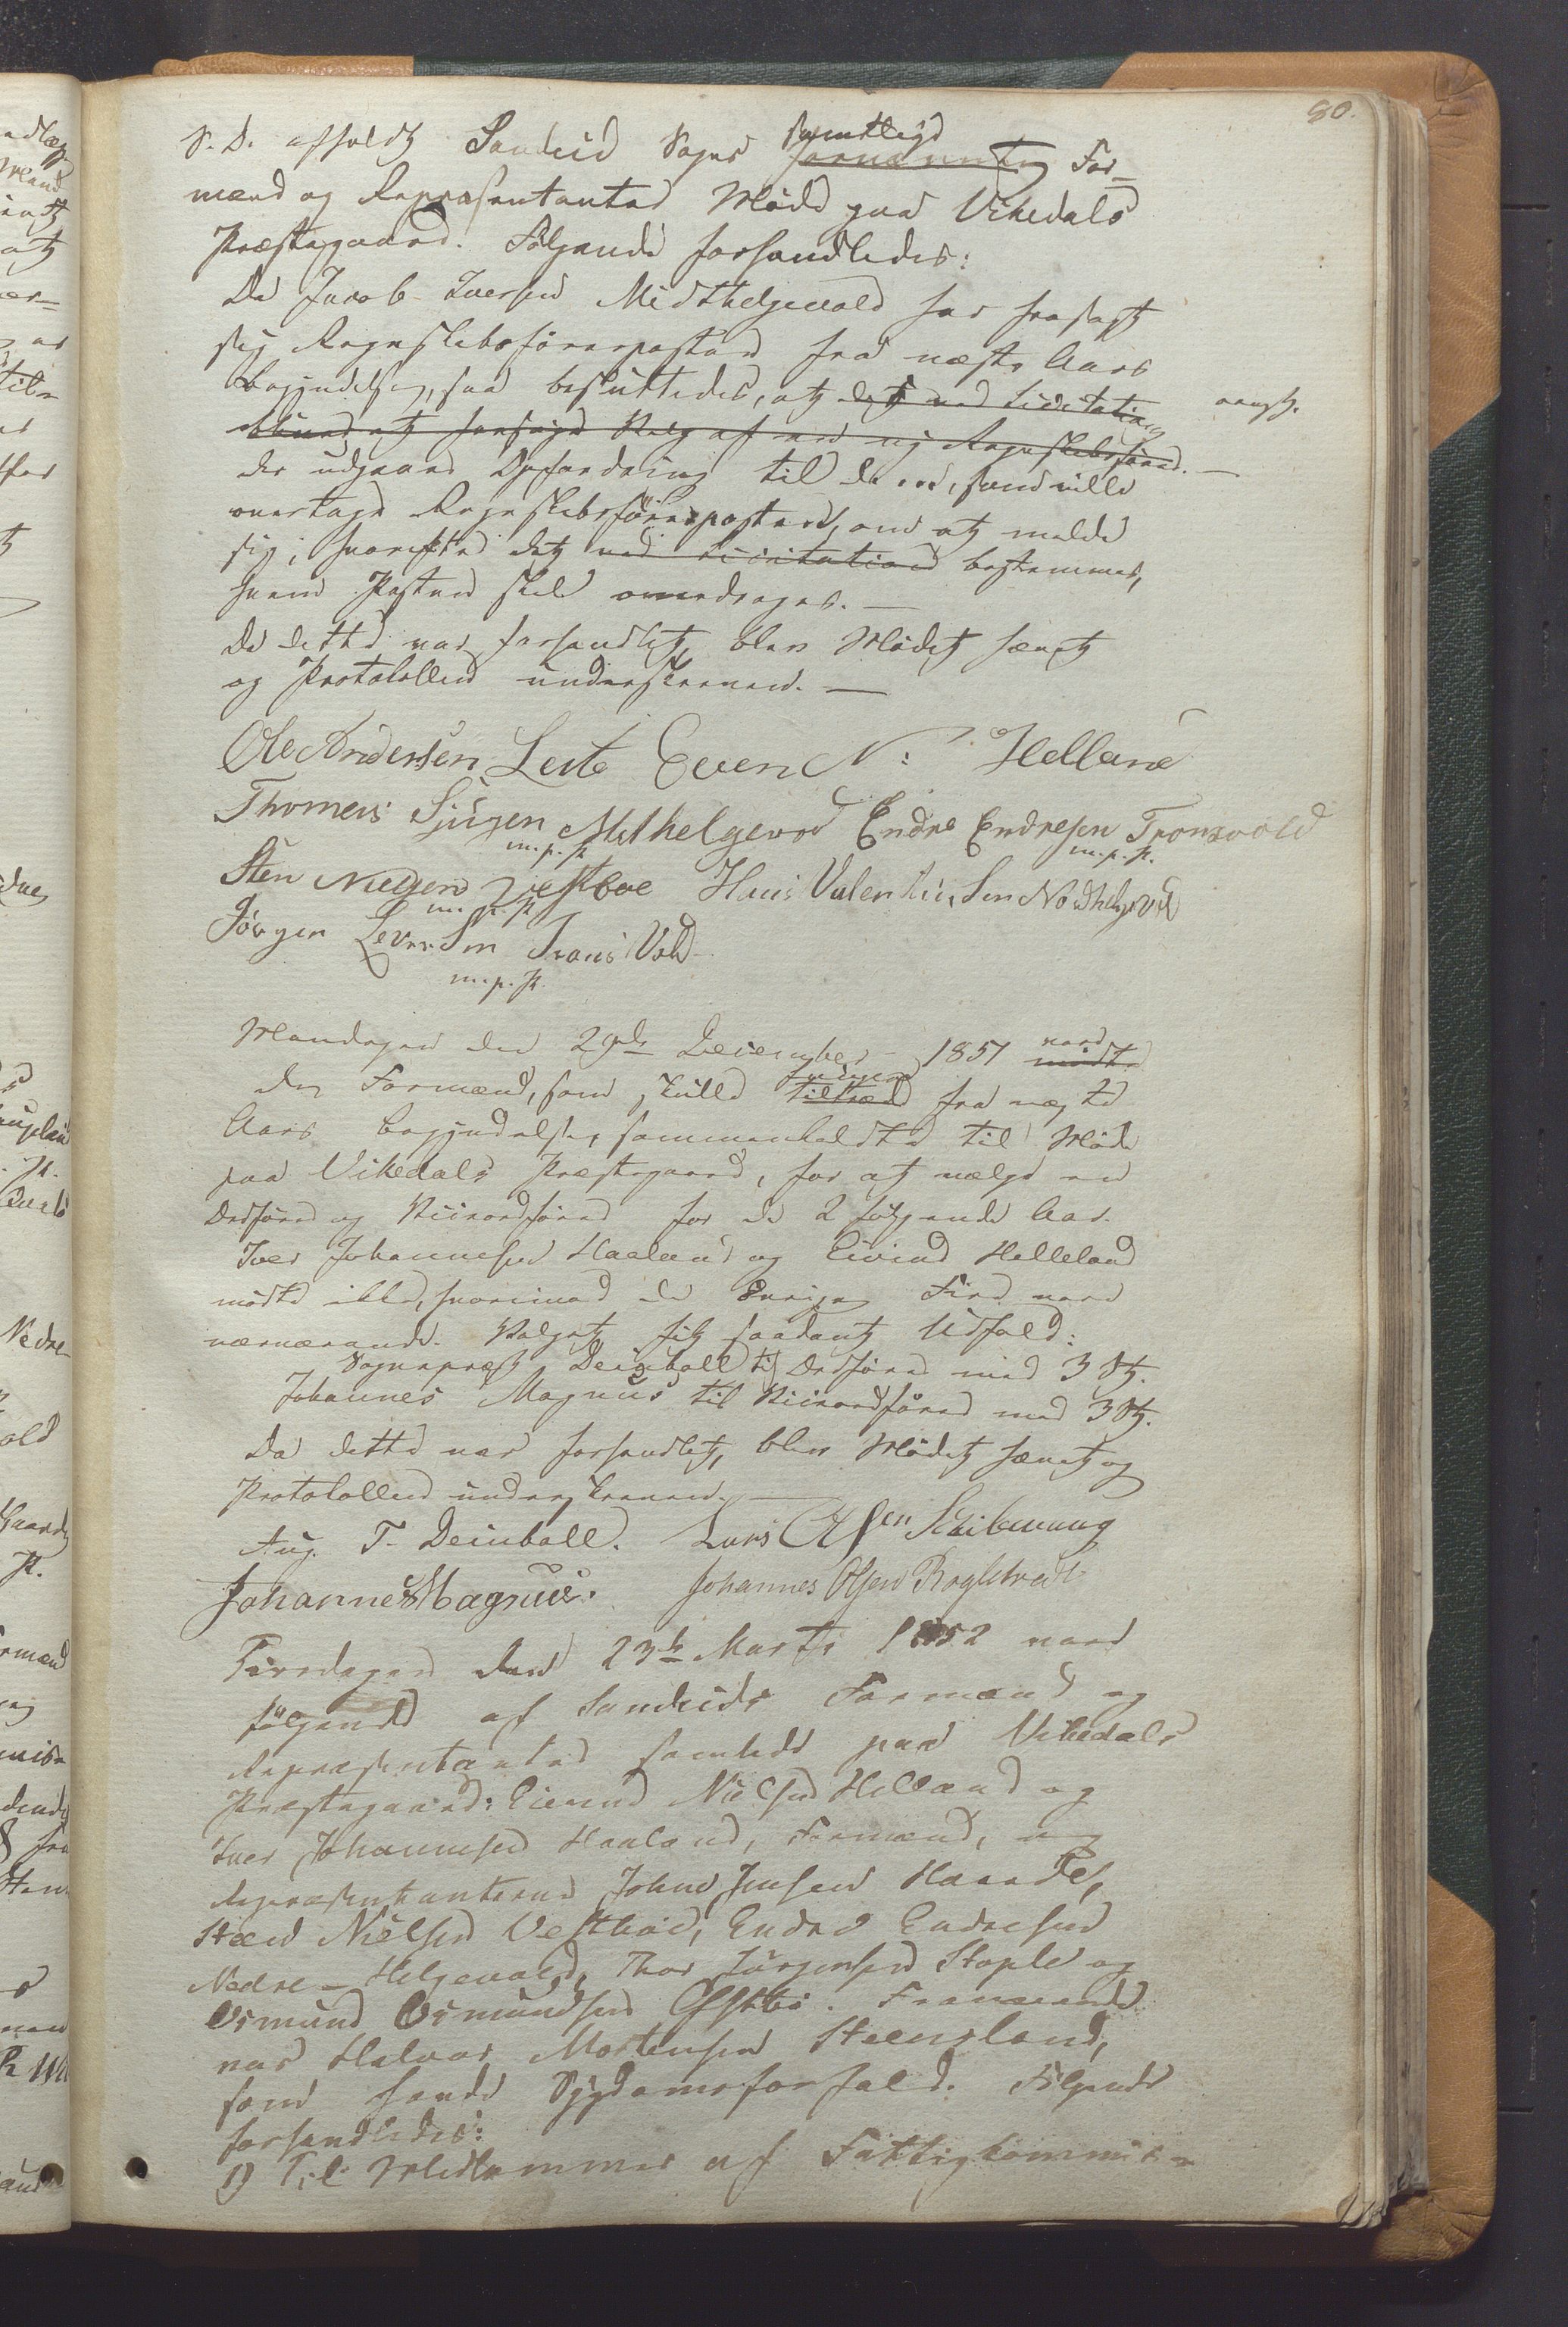 80.
S. D. afholdt Sandeid Sogns samtlige
fornævnte For-
mænd og Repræsentanter Møde paa Vikedals
Præstegaard. Følgende forhandledes:
Da Jacob Iversen Midthelgevold har frasagt
sig Regnskabsførerposten fra næste Aars
Begyndelse, saa besluttedes, at det ved Licitation
at foretage Valg af en ny Regnskabsfører. —
der udgaaer Opfordring til den, som vilde
overtage Regnskabsførerposten, om at melde
sig; hvorefter det ved Licitation bestemmes,
hvem Posten skal overdrages. —
Da dette var forhandlet, blev Mødet hævet
og Protokollen underskreven. —
Ole Andersen Leite Even N: Helland
Thomas Mithelgevod Endre Endresen Tronsvold
m. p. P. m. p. P.
Sten Nielsen Vestboe Hans Valentinsen Nordhelgevold
m. p. P.
Jörgen
m. p. P.
Mandagen den 29de December 1851 vare
mødte
de Formænd, som skulde fungere
tiltræde fra næste
Aars Begyndelse, sammenkaldte til Møde
paa Vikedals Præstegaard, for at vælge en
Ordfører og Viceordfører for de 2 følgende Aar.
Iver Johannesen Haaland og Eivind Helleland
mødte ikke, hvorimod de øvrige Fire vare
nærværende. Valget fik saadant Udfald:
Sognepræst Deinboll til Ordfører med 3 St.
Johannes Magnus til Viceordfører med 3 St.
Da dette var forhandlet, blev Mødet hævet og
Protokollen underskreven. —
Aug. T. Deinboll. Lars Olsen
Johannes Magnus. Johannes Olsen
Tirsdagen den 23de Marts 1852 vare
følgende af Sandeids Formænd og
Repræsentanter samlede paa Vikedals
Præstegaard: Eivind Nielsen Helland og
Iver Johannesen Haaland, Formænd, og
Repræsentanterne John Jensen
Steen Nielsen Vestbøe, Endre Endresen
Nedre-Helgevold, Thor Jörgensen Stople og
Osmund Osmundsen Østbø. Fraværende
var Halvor Mortensen Steensland,
som havde Sygdomsforfald. Følgende
forhandledes:
1) Til Medlemmer af Fattigkommis-